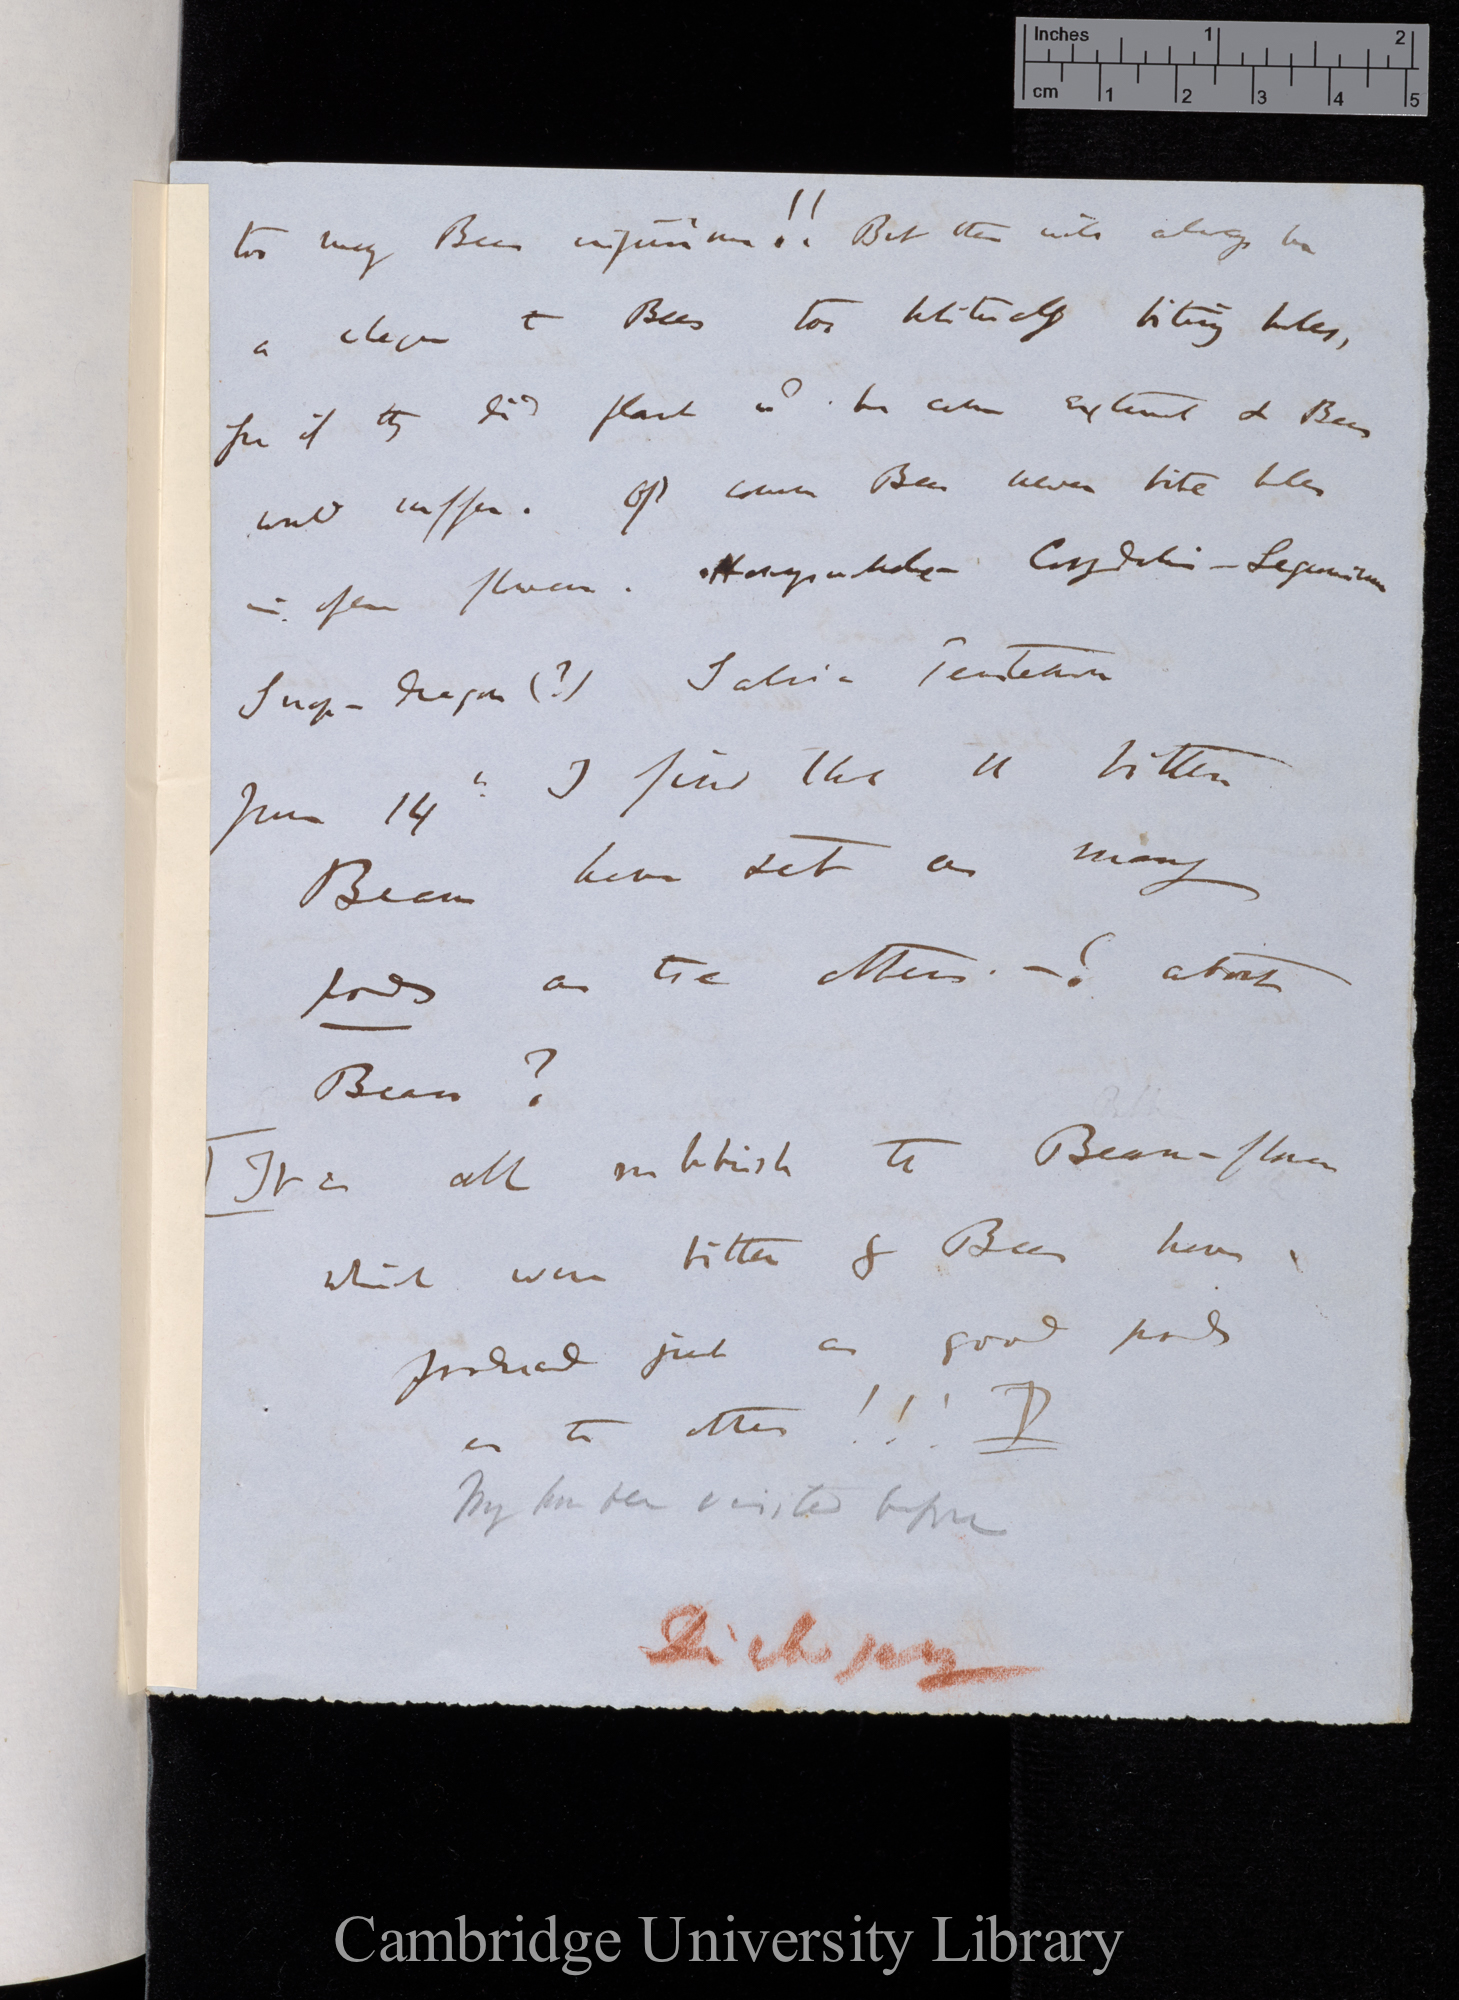 Inches 1 2
cm 1 2 3 4 5
too many Bees injurious!! But there will always be
a check to Bees too habitually biting holes,
for if they did plant wd. become extinct & Bees
would suffer. Of course Bees never bite holes
in open flowers. Corydalis – Leguminous
Snap-dragon (?) Salvia Penstemon
June 14th I find that the bitten
Beans have set as many
pods as the others. — ? about
Bean?
It is all rubbish the Bean-flowers
which were bitten by Bees have
produced just as good pods
as the others!!!
My have been visited before
Dichogamy
Cambridge University Library